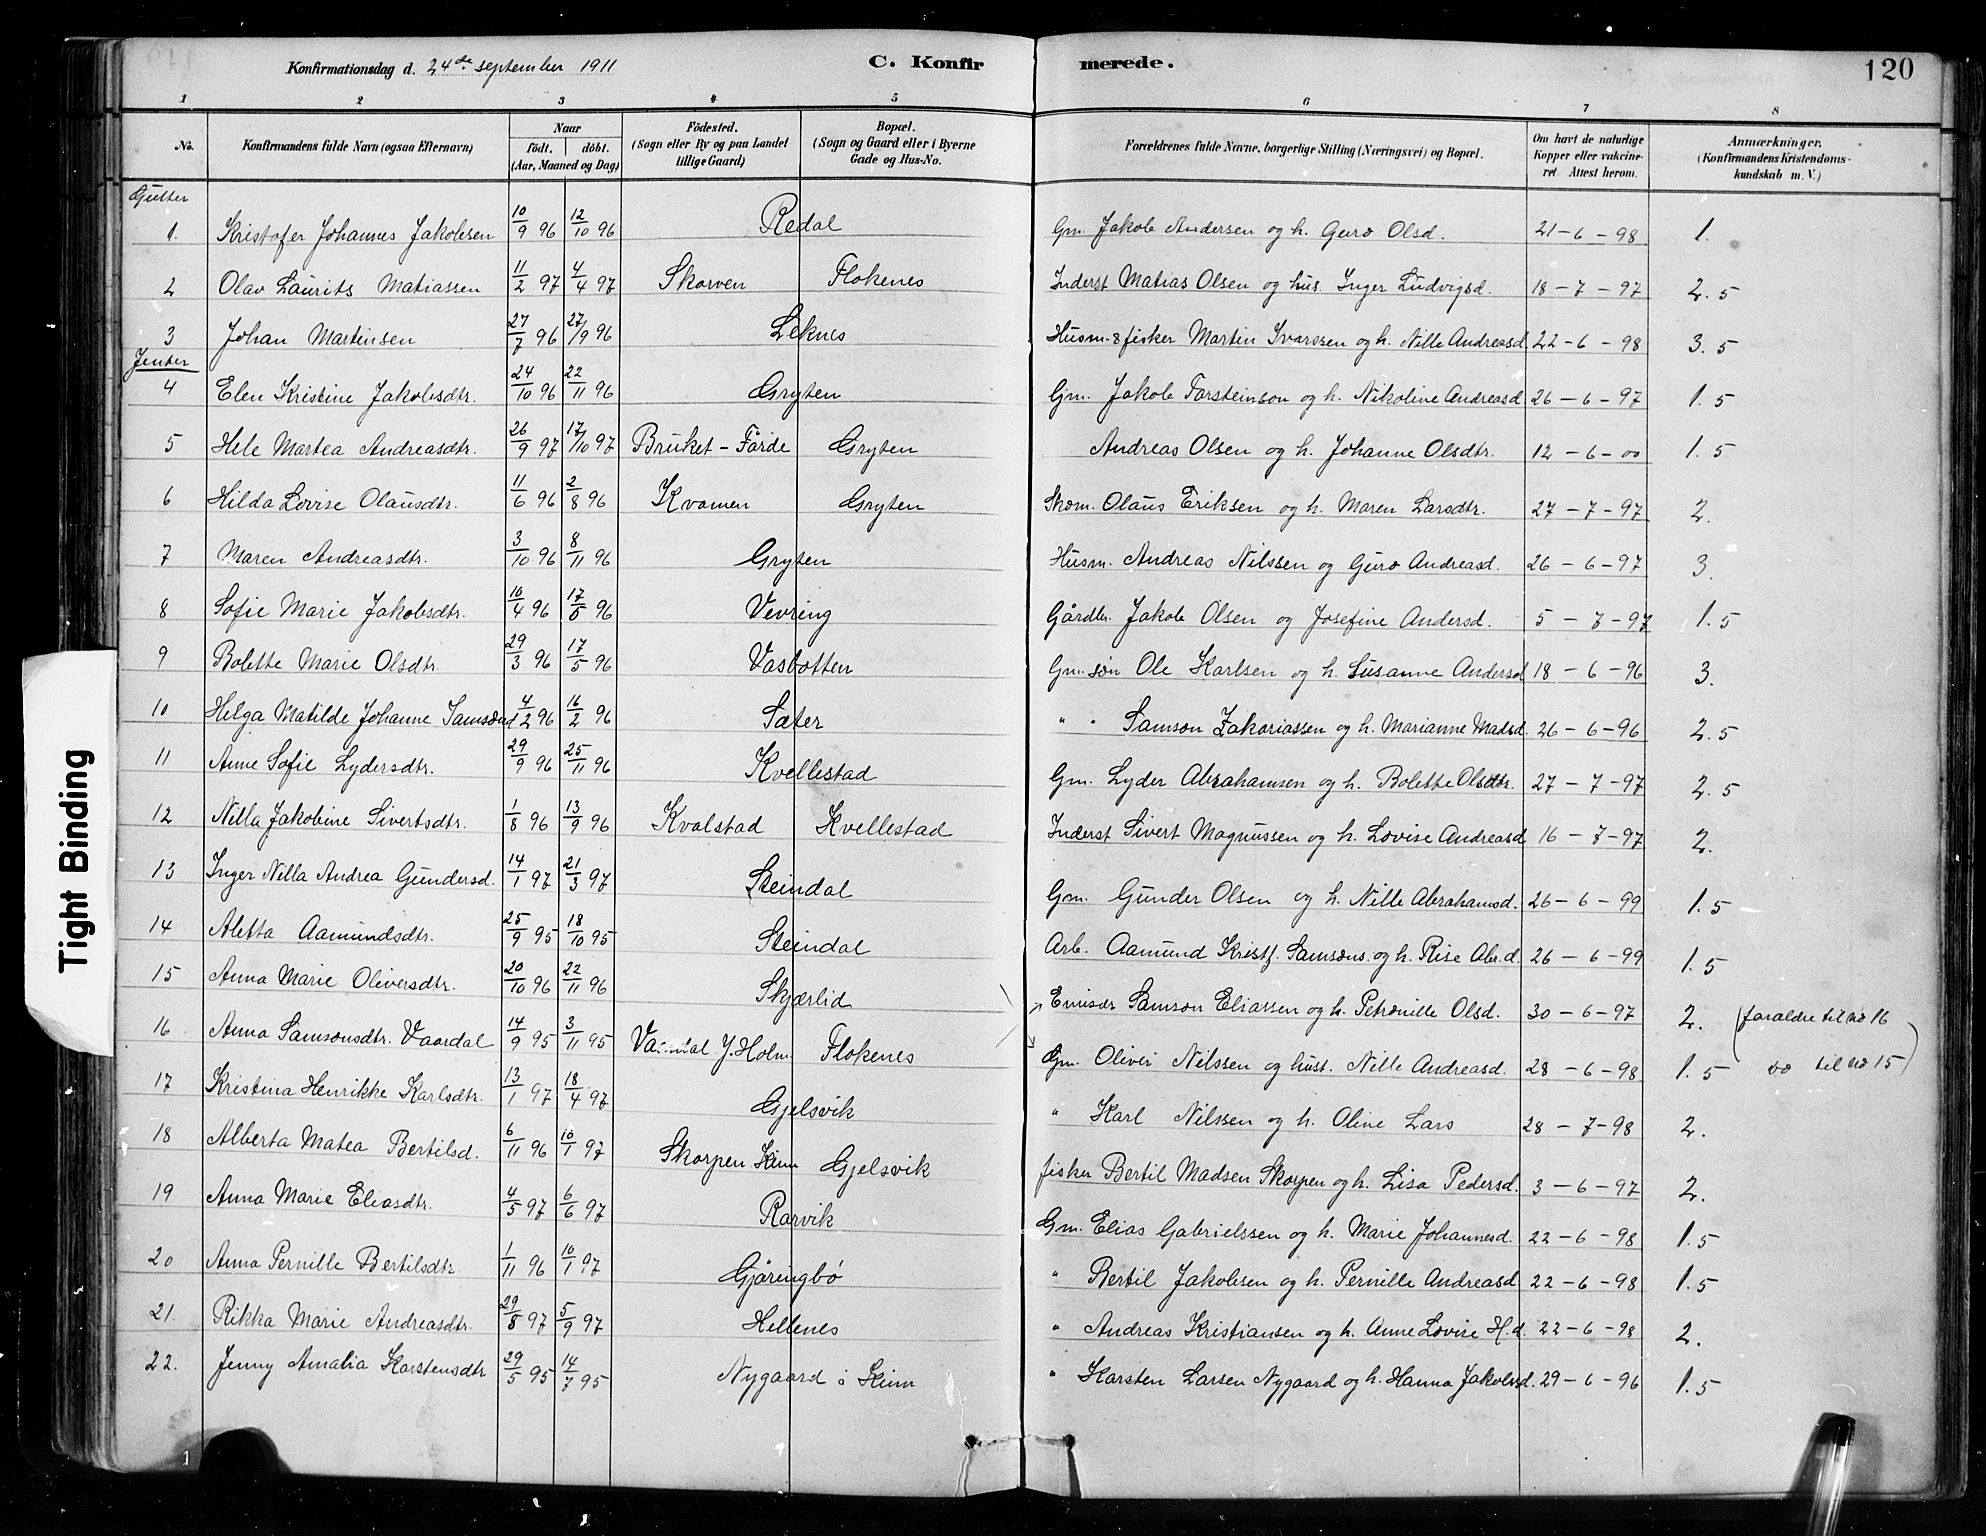 Konfirmationsdag d. 24de september 1911 C. Konfirmerede. 120
1 2 3 4 5 6 7 8
No. Konfirmandens fulde Navn (ogsaa Efternavn) Naar födt. döbt. (Aar, Maaned og Dag) Födested. (Sogn eller By og paa Landet tillige Gaard) Bopæl. (Sogn og Gaard eller i Byerne Gade og Hus-No. Forældrenes fulde Navne, borgerlige Stilling (Næringsvei) og Bopæl. Om havt de naturlige Kopper eller vakcineret Attest herom. Anmærkninger. (Konfirmandens Kristendomskundskab m. V.)
Gutter
1. Kristofer Johannes Jakobsen 10/9 96 12/10 96 Redal Gm. Jakob Andersen og h. Guro Olsd. 21-6-98 1.
2 Olav Laurits Matiassen 11/2 97 4/4 97 Skorven Flokenes Inderst Matias Olsen og hus. Inger Ludvigsd. 18-7-97 2.5
3 Johan Martinsen 27/7 96 27/9 96 Leknes Husm. & fisker Martin Ivarssen og h. Nille Andreasd 22-6-98 3.5
Jenter
4 Elen Kristine Jakobsdtr. 24/10 96 22/11 96 Gryten Gm. Jakob Torsteinson og h. Nikoline Andreasd 26-6-97 1.5
5 Hele Martea Andreasdtr. 26/9 97 17/10 97 Bruket-Förde Gryten Andreas Olsen og h. Johanne Olsdtr. 12-6-00 1.5
6 Hilda Lovise Olausdtr. 11/6 96 2/8 96 Kvamen Gryten Skom. Olaus Eriksen og h. Maren Larsdtr. 27-7-97 2.
7 Maren Andreasdtr. 3/10 96 8/11 96 Gryten Husm. Andreas Nilssen og Guro Andreasd. 26-6-97 3.
8 Sofie Marie Jakobsdtr. 10/4 96 17/5 96 Vevring Gårdbr. Jakob Olsen og Josefine Andersd. 5-7-97 1.5
9 Bolette Marie Olsdtr. 29/3 96 17/5 96 Vasbotten Gm. søn Ole Karlsen og h. Susanne Andersd 18-6-96 3.
10 Helga Matilde Johanne Samsond 4/2 96 16/2 96 Sæter " " Samson Zakariassen og h. Marianne Madsd. 26-6-96 2.5
11 Anne Sofie Lydersdtr. 29/9 96 25/11 96 Kvellestad Gm. Lyder Abrahamsen og h. Bolette Olsdtr. 27-7-97 2.5
12 Nilla Jakobine Sivertsdtr. 1/8 96 13/9 96 Kvalstad Kvellestad Inderst Sivert Magnussen og h. Lovise Andreasd 16-7-97 2.
13 Inger Nilla Andrea Gundersd. 14/1 97 21/3 97 Steindal Gm. Gunder Olsen og h. Nille Abrahamsd. 26-6-99 1.5
14 Aletta Aamundsdtr. 25/9 95 18/10 95 Steindal Arb. Aamund Kristf. Samsons. og h. Rise Abr.d. 26-6-99 1.5
15 Anna Marie Oliversdtr. 20/10 96 22/11 96 Skjærlid Emisær Samson Eliassen og h. Petronille Olsd. 30-6-97 2. (foraldre til no 16
16 Anna Samsonsdtr. Vaardal 14/9 95 3/11 95 J. Holm Flokenes Gm. Oliver Nilssen og hust. Nille Andreasd. 28-6-98 1.5 do til no 15)
17 Kristina Henrikke Karlsdtr. 13/1 97 18/4 97 Gjelsvik " Karl Nilssen og h. Oline Lars 28-7-98 2.
18 Alberta Matea Bertilsd. 6/11 96 10/1 97 Skorpen Kinn Gjelsvik fisker Bertil Madsen Skorpen og h. Lisa Pedersd. 3-6-97 2.
19 Anna Marie Eliasdtr. 4/5 97 6/6 97 Rarvik Gm. Elias Gabrielssen og h. Marie Johannesd. 22-6-98 1.5
20 Anna Pernille Bertilsdtr 1/11 96 10/1 97 Gjöringbö " Bertil Jakobsen og h. Pernille Andreasd. 22-6-98 1.5
21. Rikka Marie Andreasdtr. 29/8 97 5/9 97 Hellenes " Andreas Kristiansen og h. Anne Lovise H.d. 22-6-98 2.
22. Jenny Amalia Karstensdtr 29/5 95 14/7 95 Nygaard i Kinn " Karsten Larsen Nygaard og h. Hanna Jakobsd. 29-6-96 1.5
Tight Binding